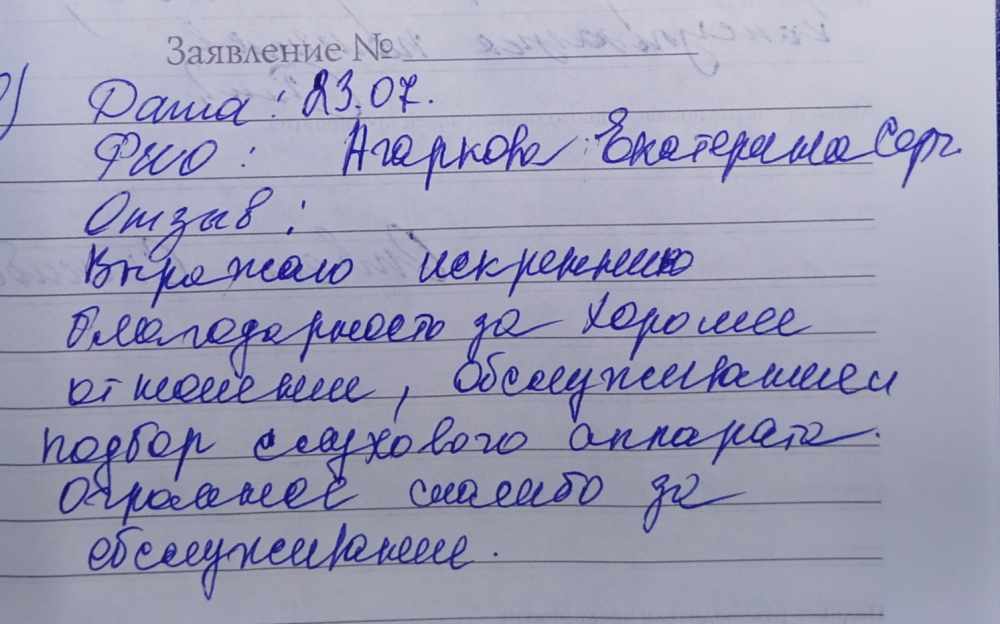 Заявление №
Дата: 23.07.
ФИО: Агаркова Екатерина Серг.
Отзыв:
Выражаю искреннюю
благодарность за хорошее
отношение, обслуживание и
подбор слухового аппарата.
Огромное спасибо за
обслуживание.